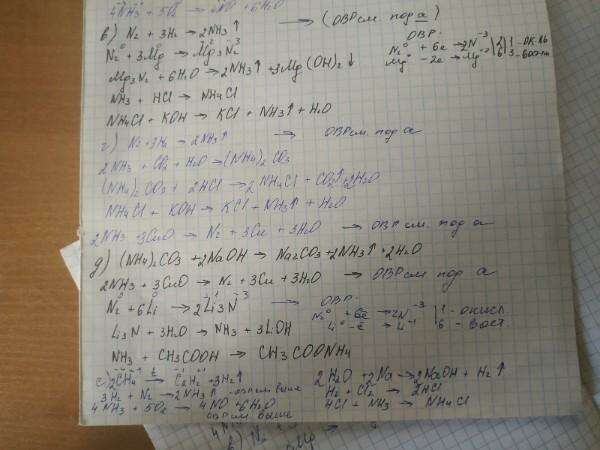 4NH₃ + 5O₂ → 4NO + 6H₂O
в) N₂ + 3H₂ → 2NH₃↑ → (ОВР см. под а)
N₂⁰ + 3Mg⁰ → Mg₃N₂ ОВР:
N₂⁰ + 6e → 2N⁻³ |2| 1 - ок-ль
Mg⁰ - 2e → Mg⁺² |6| 3 - восст-ль
Mg₃N₂ + 6H₂O → 2NH₃↑ + 3Mg(OH)₂↓
NH₃ + HCl → NH₄Cl
NH₄Cl + KOH → KCl + NH₃↑ + H₂O
г) N₂ + 3H₂ → 2NH₃↑ → ОВР см. под а
2NH₃ + CO₂ + H₂O → (NH₄)₂CO₃
(NH₄)₂CO₃ + 2HCl → 2NH₄Cl + CO₂↑ + H₂O
NH₄Cl + KOH → KCl + NH₃↑ + H₂O
2NH₃ + 3CuO → N₂ + 3Cu + 3H₂O → ОВР см. под а
д) (NH₄)₂CO₃ + 2NaOH → Na₂CO₃ + 2NH₃↑ + 2H₂O
2NH₃ + 3CuO → N₂ + 3Cu + 3H₂O → ОВР см под а
N₂⁰ + 6Li⁰ → 2Li₃N⁻³ → ОВР:
N₂⁰ + 6e → 2N⁻³ | 1 - окисл.
Li⁰ - e → Li⁺¹ | 6 - восст.
Li₃N + 3H₂O → NH₃ + 3LiOH
NH₃ + CH₃COOH → CH₃COONH₄
е) 2CH₄ →(t) C₂H₂ + 3H₂↑ 2H₂O + 2Na → 2NaOH + H₂↑
3H₂ + N₂ → 2NH₃↑ - ОВР выше H₂ + Cl₂ → 2HCl
4NH₃ + 5O₂ → 4NO + 6H₂O HCl + NH₃ → NH₄Cl
ОВР см. выше